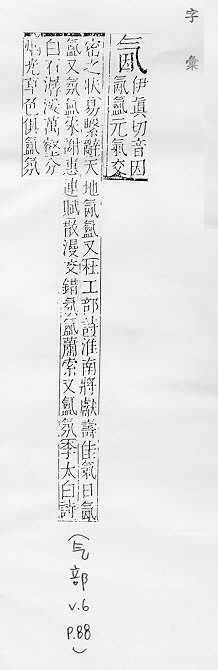 字彙
氤伊真切音因
氤氳元氣交
密之狀易繫辭天地氤氳又杜工部詩淮南將獻壽佳氣日氤
氳又氛氳宋謝惠連賦散漫交錯氛氳蕭索又氳氛李太白詩
白石潺湲萬壑分
烟光草色俱氳氛
(气部 v.6 p.88)